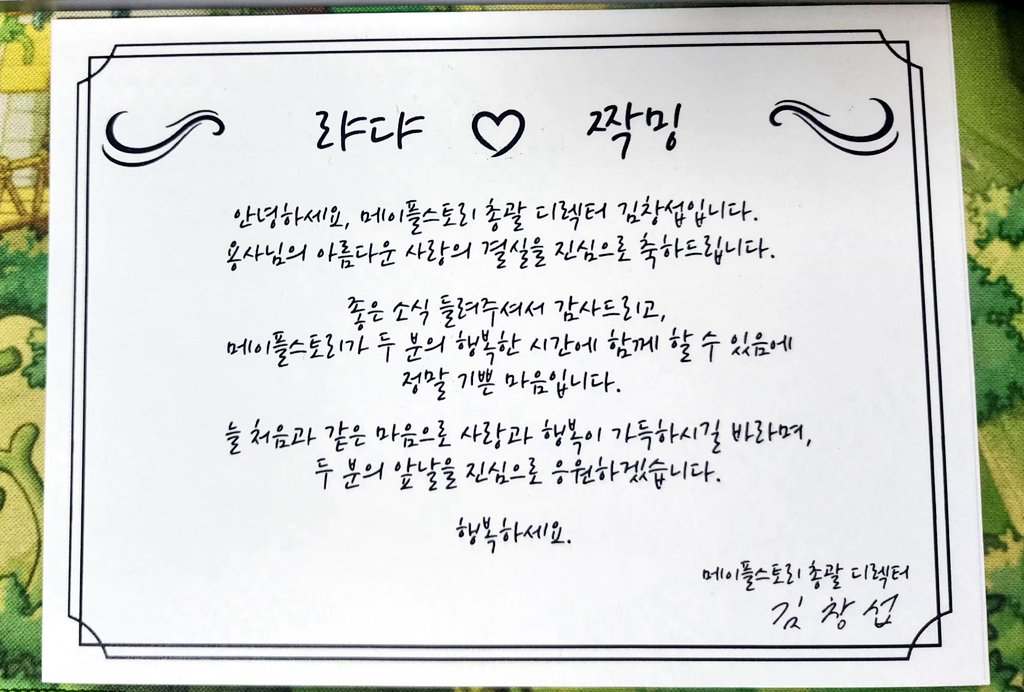 랴댜 ♡ 짝밍
안녕하세요, 메이플스토리 총괄 디렉터 김창섭입니다.
용사님의 아름다운 사랑의 결실을 진심으로 축하드립니다.
좋은 소식 들려주셔서 감사드리고,
메이플스토리가 두 분의 행복한 시간에 함께 할 수 있음에
정말 기쁜 마음입니다.
늘 처음과 같은 마음으로 사랑과 행복이 가득하시길 바라며,
두 분의 앞날을 진심으로 응원하겠습니다.
행복하세요.
메이플스토리 총괄 디렉터
김창섭